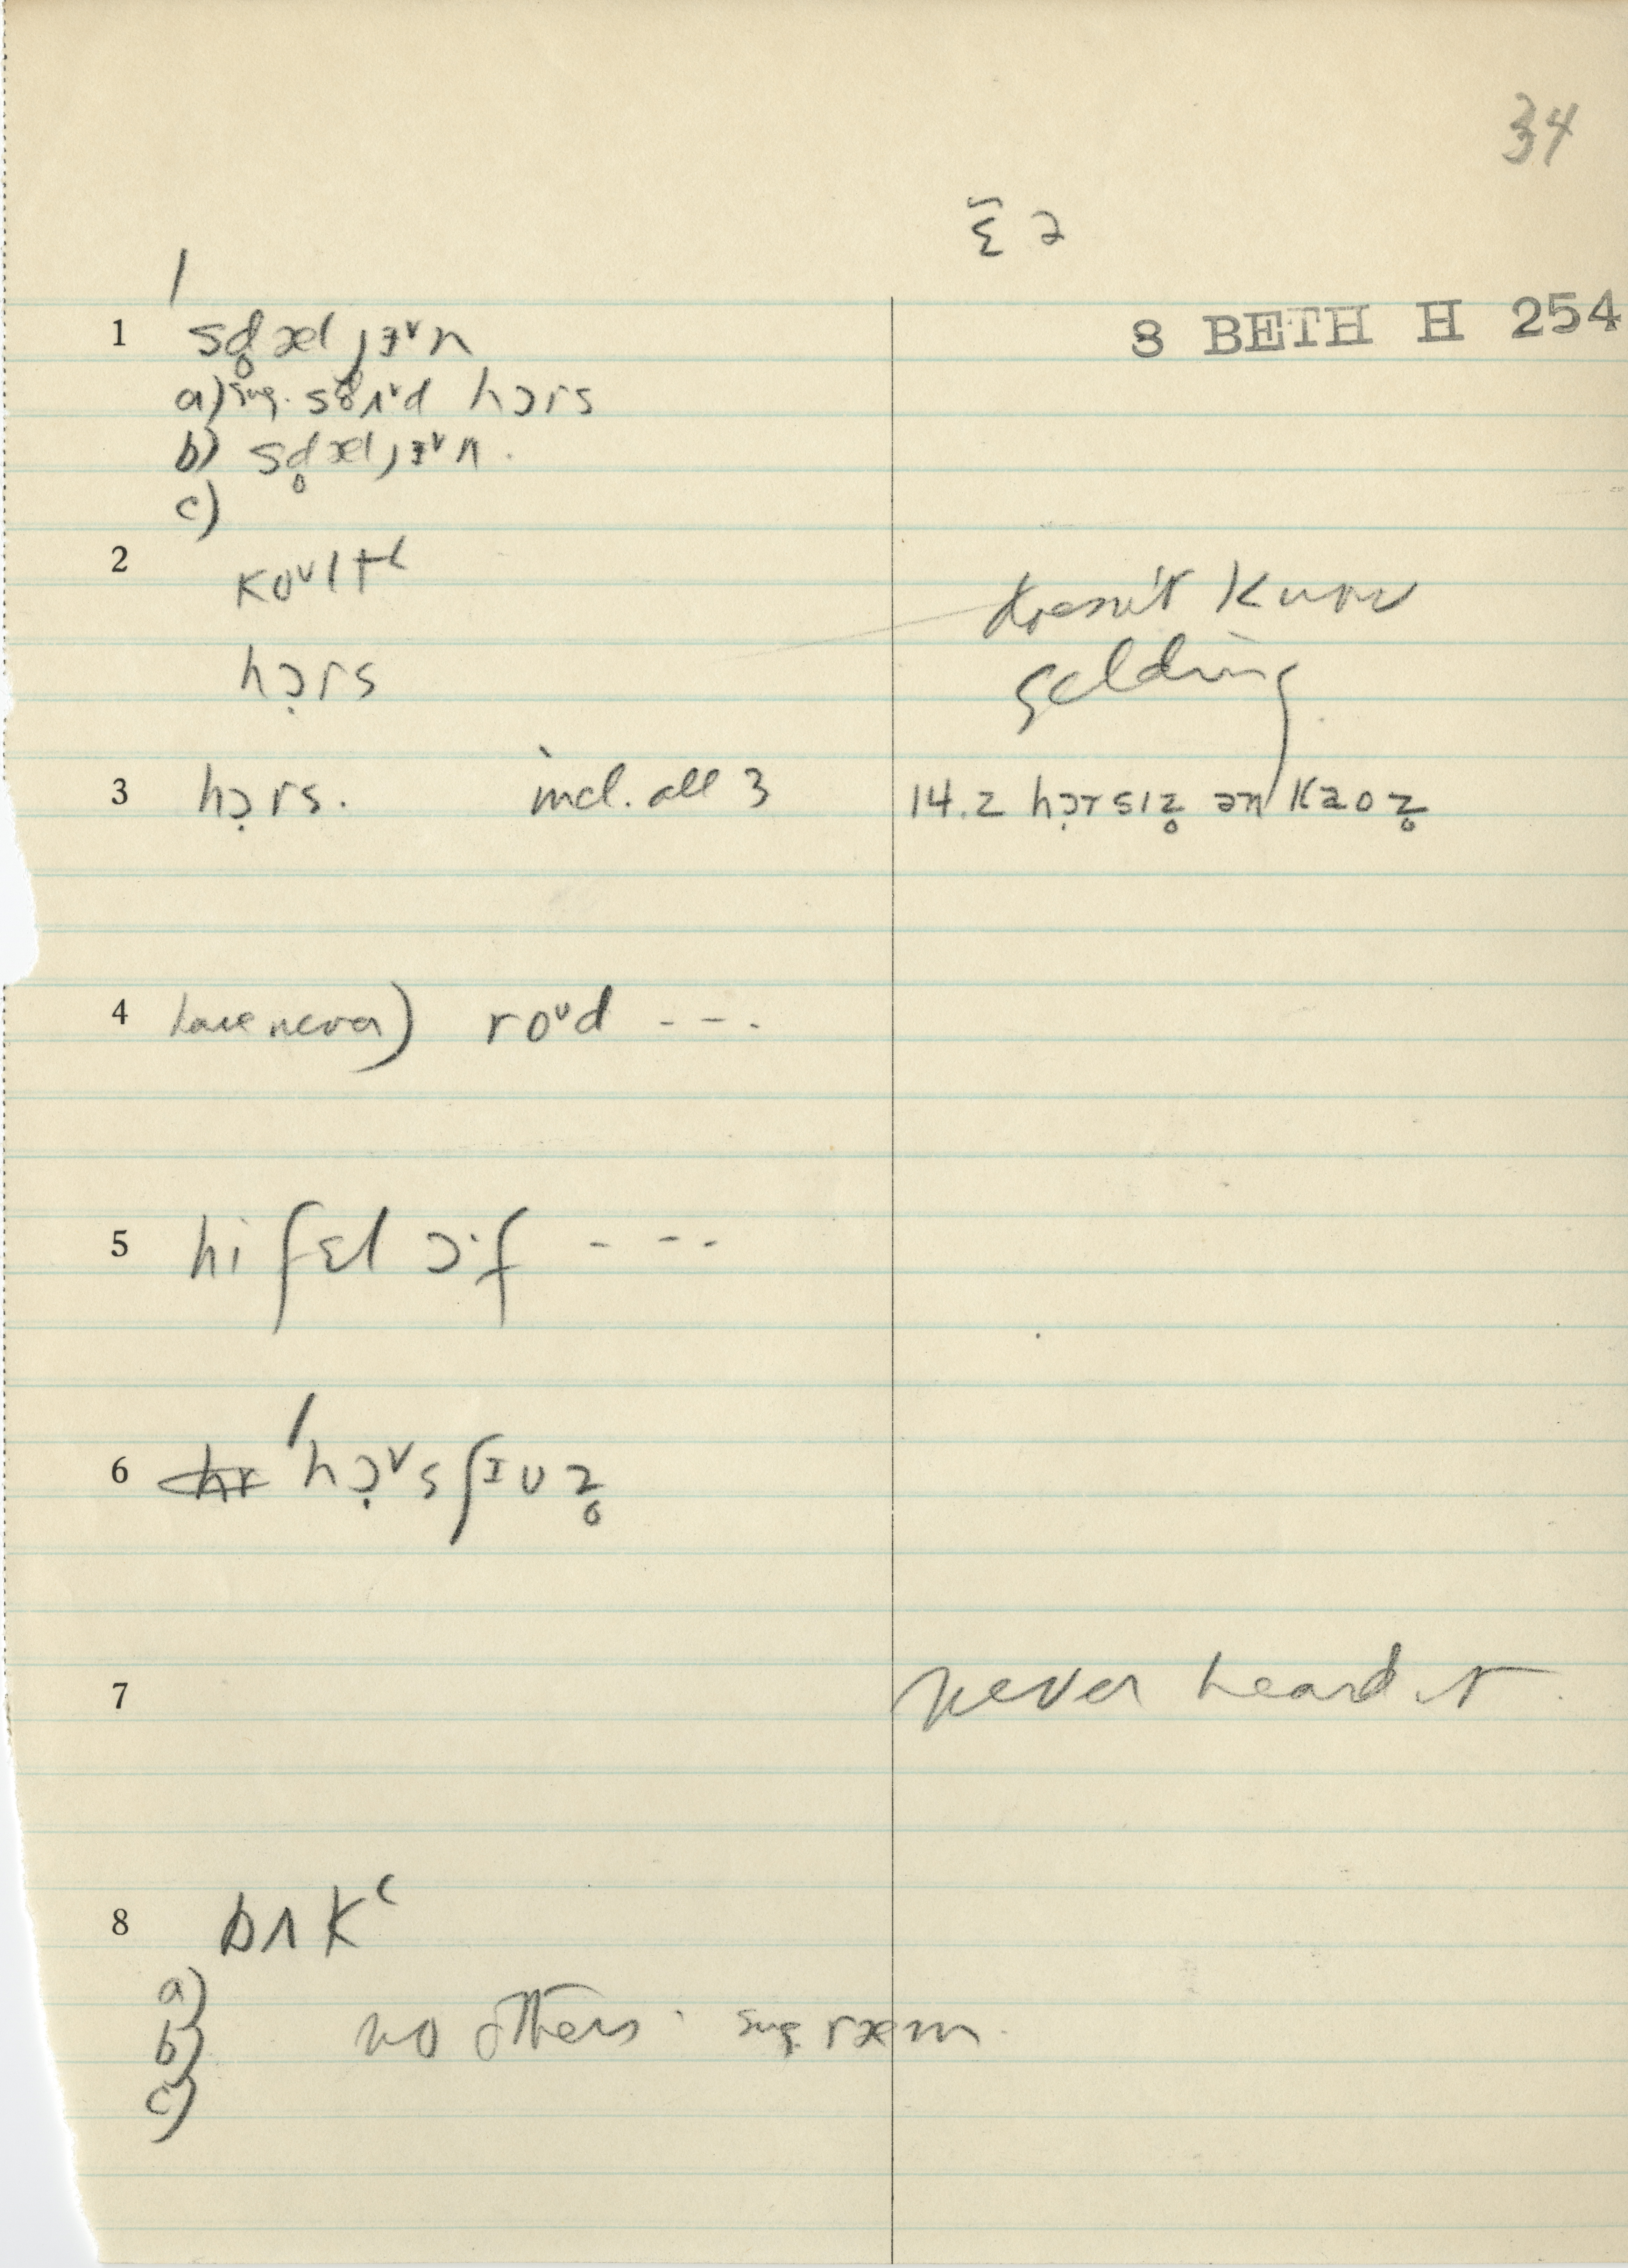 34
ɛ̆ ə
8 BETH H 254
1 sd̥æl ɜᵛn
a) sug. hɔrs
b) sd̥æl ɜᵛn.
c)
2 koᵛltʻ
doesn't know
hɔ̣rs
gelding
3 hɔ̣rs. incl. all 3
14.2 hɔ̣rsɪz̥ ən kaoz̥
4 have never) roᵛd ---.
5 hi fɛl ɔ·f ---
6 ˈhɔ̣ᵛsʃɪuz̥
7 never heard it.
8 bʌkʻ
a)
b) no others. sug. ræm.
c)